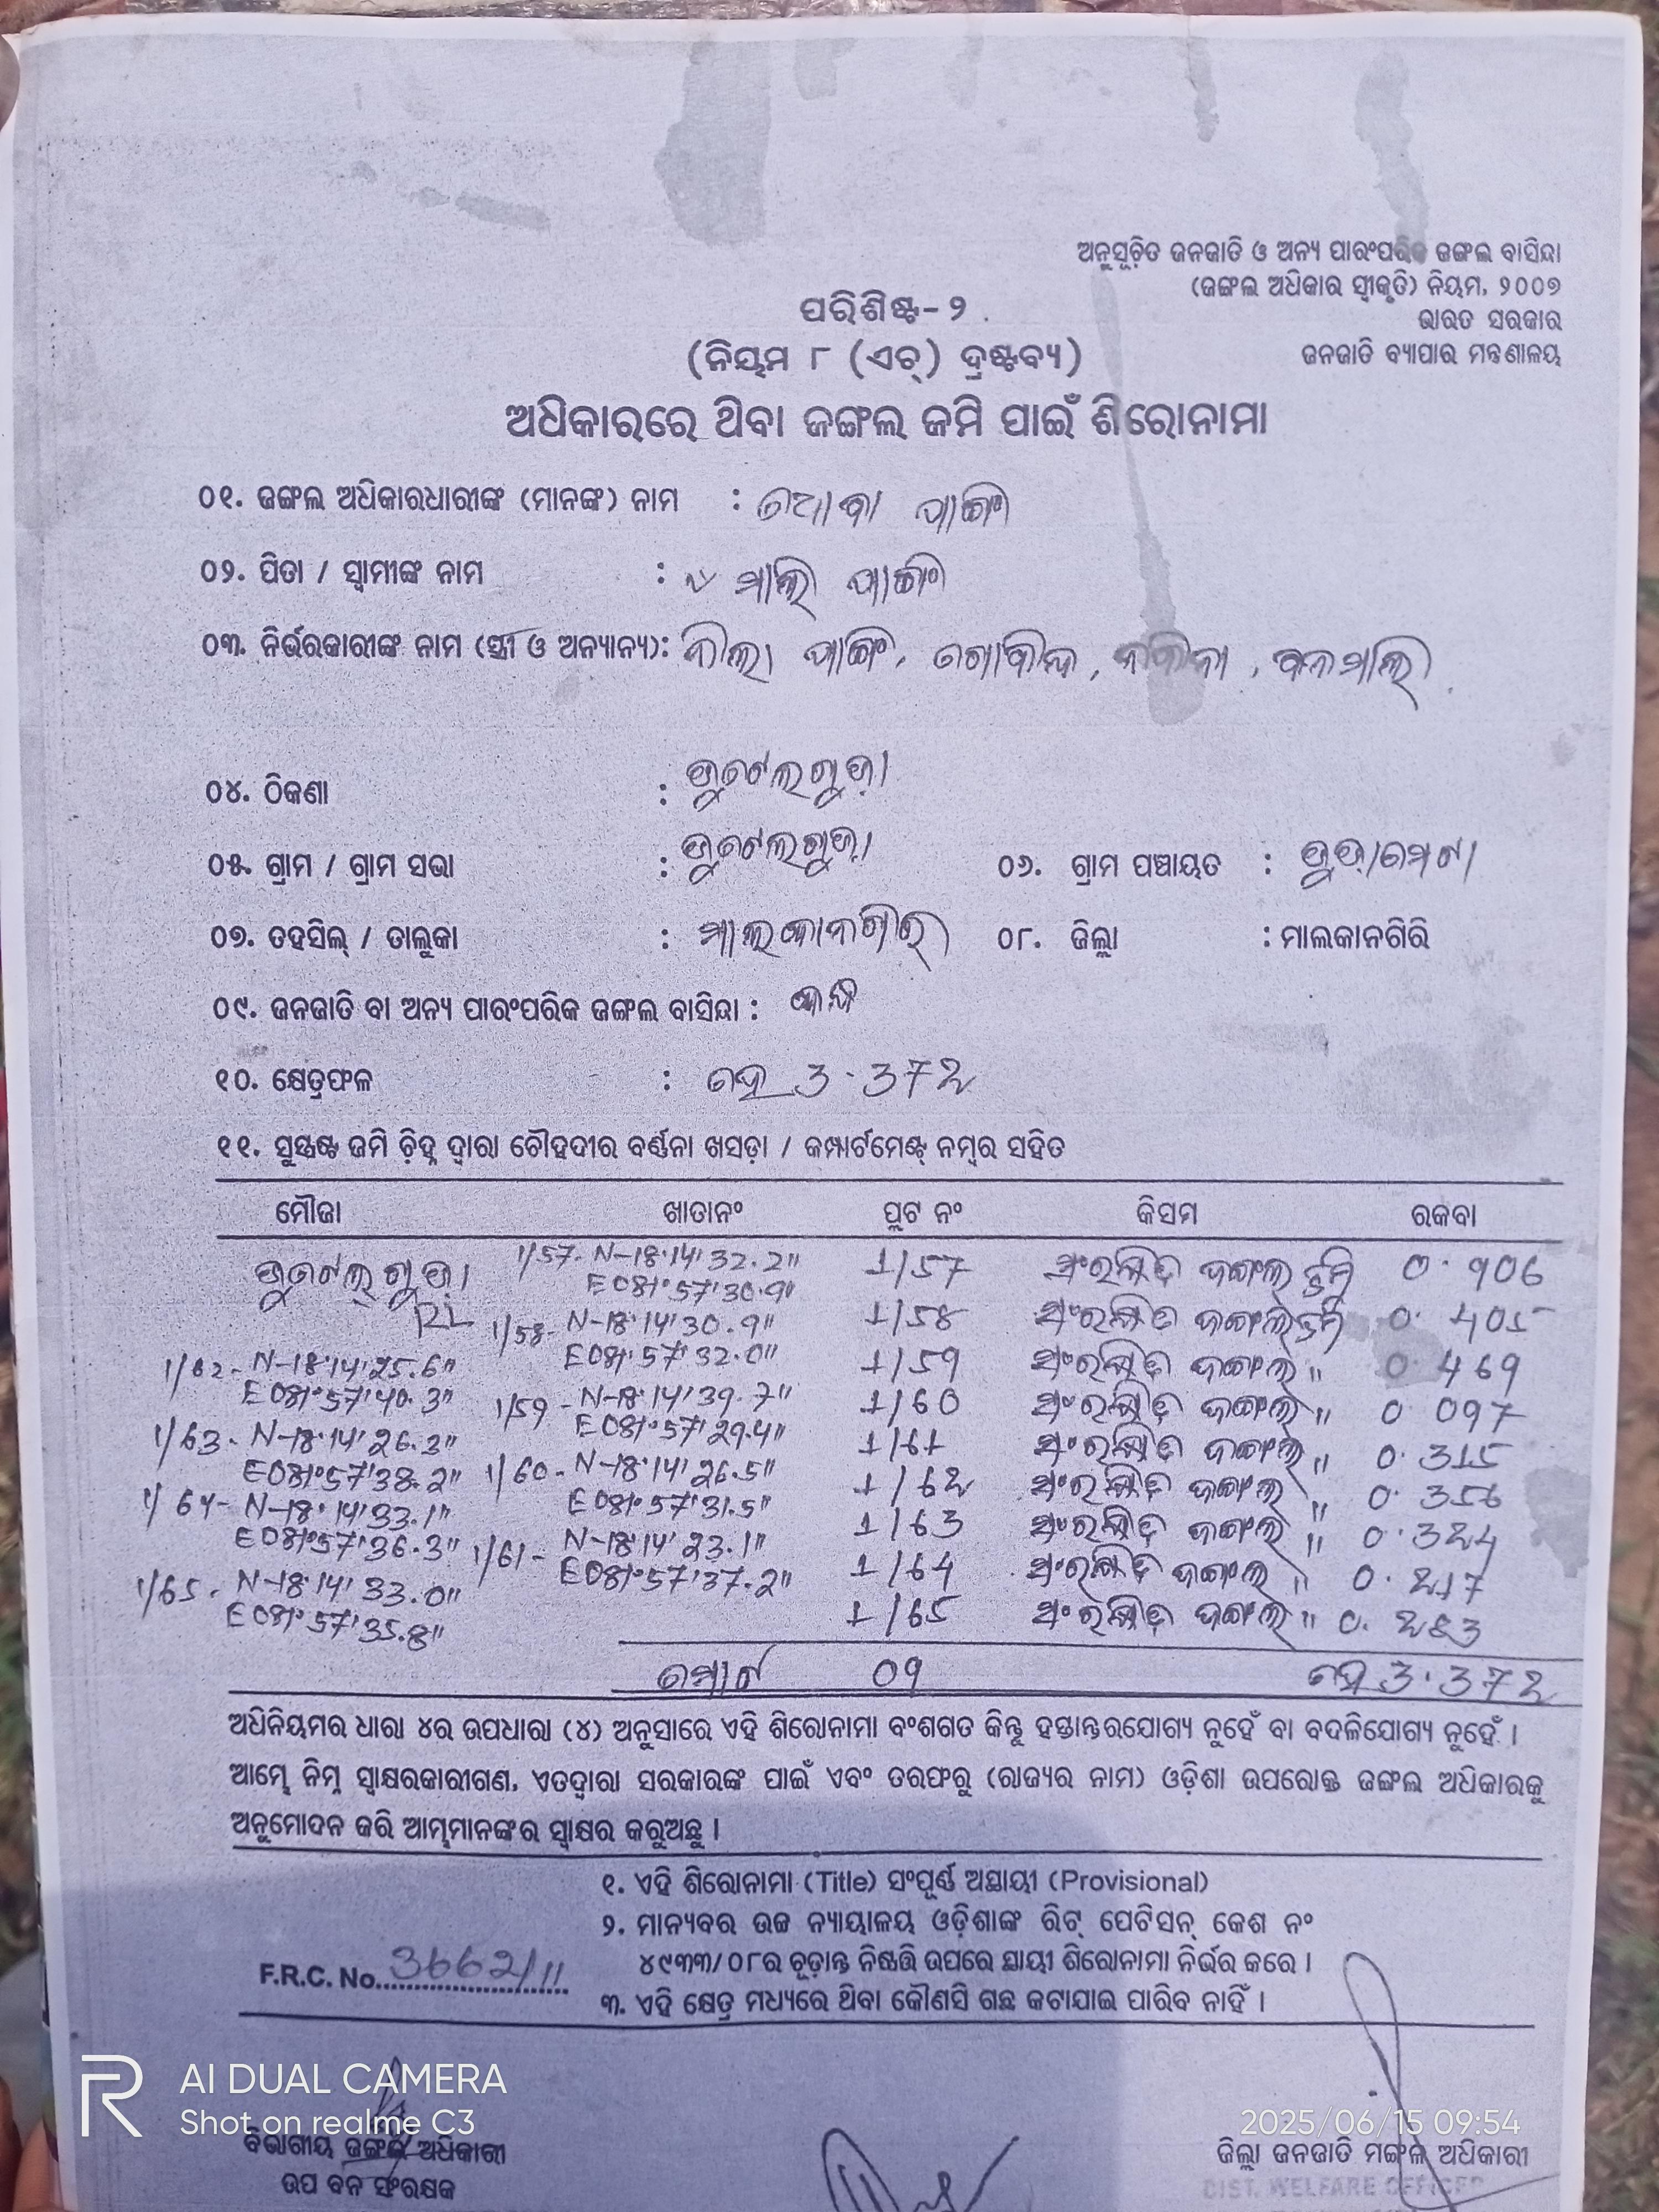 ଅନୁସୂଚିତ ଜନଜାତି ଓ ଅନ୍ୟ ପାରଂପରିକ ଜଙ୍ଗଲ ବାସିନ୍ଦା
(ଜଙ୍ଗଲ ଅଧିକାର ସ୍ୱୀକୃତି) ନିୟମ, ୨୦୦୭
ଭାରତ ସରକାର
ଜନଜାତି ବ୍ୟାପାର ମନ୍ତ୍ରଣାଳୟ
ପରିଶିଷ୍ଟ-୨
(ନିୟମ ୮ (ଏଚ୍) ଦ୍ରଷ୍ଟବ୍ୟ)
ଅଧିକାରରେ ଥିବା ଜଙ୍ଗଲ ଜମି ପାଇଁ ଶିରୋନାମା
୦୧. ଜଙ୍ଗଲ ଅଧିକାରଧାରୀଙ୍କ (ମାନଙ୍କ) ନାମ :
୦୨. ପିତା / ସ୍ୱାମୀଙ୍କ ନାମ : ମାଲି
୦୩. ନିର୍ଭରକାରୀଙ୍କ ନାମ (ସ୍ତ୍ରୀ ଓ ଅନ୍ୟାନ୍ୟ): ଗୋବିନ୍ଦ, ବନମାଲି
୦୪. ଠିକଣା :
୦୫. ଗ୍ରାମ / ଗ୍ରାମ ସଭା : ୦୬. ଗ୍ରାମ ପଞ୍ଚାୟତ :
୦୭. ତହସିଲ୍ / ତାଲୁକା : ମାଲକାନଗିରି ୦୮. ଜିଲ୍ଲା : ମାଲକାନଗିରି
୦୯. ଜନଜାତି ବା ଅନ୍ୟ ପାରଂପରିକ ଜଙ୍ଗଲ ବାସିନ୍ଦା :
୧୦. କ୍ଷେତ୍ରଫଳ : ହେ 3.372
୧୧. ସୁସ୍ପଷ୍ଟ ଜମି ଚିହ୍ନ ଦ୍ୱାରା ଚୌହଦୀର ବର୍ଣ୍ଣନା ଖସଡ଼ା / କମ୍ପାର୍ଟମେଣ୍ଟ୍ ନମ୍ବର ସହିତ
ମୌଜା ଖାତାନଂ ପ୍ଲଟ ନଂ କିସମ ରକବା
1/57- N-18°14'32.2" 1/57 ସଂରକ୍ଷିତ ଜଙ୍ଗଲ ଭୂମି 0.906
E081°57'30.9"
1/58- N-18°14'30.9" 1/58 ସଂରକ୍ଷିତ ଜଙ୍ଗଲ ଭୂମି 0.405
E081°57'32.0"
1/62- N-18°14'25.6" 1/59 ସଂରକ୍ଷିତ ଜଙ୍ଗଲ " 0.469
E081°57'40.3" 1/59- N-18°14'39.7" 1/60 ସଂରକ୍ଷିତ ଜଙ୍ଗଲ " 0.097
E081°57'29.4"
1/63- N-18°14'26.2" 1/61 ସଂରକ୍ଷିତ ଜଙ୍ଗଲ " 0.315
E081°57'38.2" 1/60- N-18°14'26.5" 1/62 ସଂରକ୍ଷିତ ଜଙ୍ଗଲ " 0.356
E081°57'31.5"
1/64- N-18°14'33.1" 1/63 ସଂରକ୍ଷିତ ଜଙ୍ଗଲ " 0.324
E081°57'36.3" 1/61- N-18°14'23.1" 1/64 ସଂରକ୍ଷିତ ଜଙ୍ଗଲ " 0.217
E081°57'37.2"
1/65- N-18°14'33.0" 1/65 ସଂରକ୍ଷିତ ଜଙ୍ଗଲ " 0.283
E081°57'35.8"
ମୋଟ 09 ହେ 3.372
ଅଧିନିୟମର ଧାରା ୪ର ଉପଧାରା (୪) ଅନୁସାରେ ଏହି ଶିରୋନାମା ବଂଶଗତ କିନ୍ତୁ ହସ୍ତାନ୍ତରଯୋଗ୍ୟ ନୁହେଁ ବା ବଦଳିଯୋଗ୍ୟ ନୁହେଁ ।
ଆମ୍ଭେ ନିମ୍ନ ସ୍ୱାକ୍ଷରକାରୀଗଣ, ଏତଦ୍ୱାରା ସରକାରଙ୍କ ପାଇଁ ଏବଂ ତରଫରୁ (ରାଜ୍ୟର ନାମ) ଓଡ଼ିଶା ଉପରୋକ୍ତ ଜଙ୍ଗଲ ଅଧିକାରକୁ
ଅନୁମୋଦନ କରି ଆମ୍ଭମାନଙ୍କର ସ୍ୱାକ୍ଷର କରୁଅଛୁ ।
୧. ଏହି ଶିରୋନାମା (Title) ସଂପୂର୍ଣ୍ଣ ଅସ୍ଥାୟୀ (Provisional)
୨. ମାନ୍ୟବର ଉଚ୍ଚ ନ୍ୟାୟାଳୟ ଓଡ଼ିଶାଙ୍କ ରିଟ୍ ପେଟିସନ୍ କେଶ ନଂ
୪୯୩୩/୦୮ର ଚୂଡ଼ାନ୍ତ ନିଷ୍ପତ୍ତି ଉପରେ ସ୍ଥାୟୀ ଶିରୋନାମା ନିର୍ଭର କରେ ।
F.R.C. No. 3662/11
୩. ଏହି କ୍ଷେତ୍ର ମଧ୍ୟରେ ଥିବା କୌଣସି ଗଛ କଟାଯାଇ ପାରିବ ନାହିଁ ।
AI DUAL CAMERA
Shot on realme C3
2025/06/15 09:54
ବିଭାଗୀୟ ଜଙ୍ଗଲ ଅଧିକାରୀ
ଉପ ବନ ସଂରକ୍ଷକ
ଜିଲ୍ଲା ଜନଜାତି ମଙ୍ଗଳ ଅଧିକାରୀ
DIST. WELFARE OFFICER